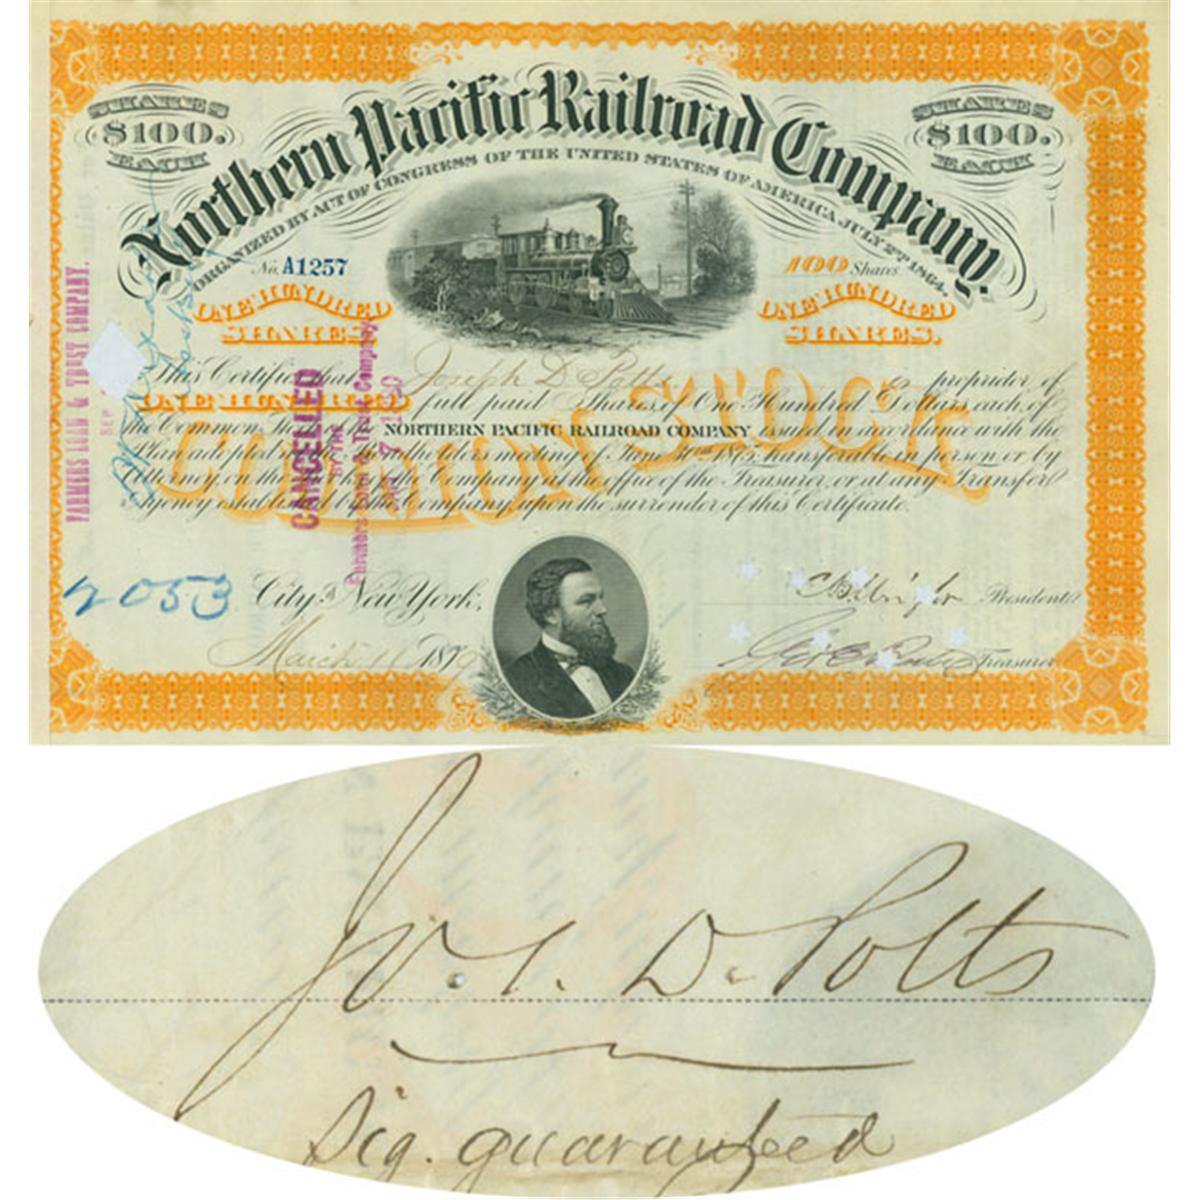 SHARES
$100.
EACH
SHARES
$100.
EACH
Northern Pacific Railroad Company.
ORGANIZED BY ACT OF CONGRESS OF THE UNITED STATES OF AMERICA JULY 2ND 1864.
No. A1257
100 Shares
ONE HUNDRED
SHARES.
ONE HUNDRED
SHARES.
This Certifies that Joseph D. Potts is proprietor of
ONE HUNDRED full paid Shares of One Hundred Dollars each, of
the Common Stock of the NORTHERN PACIFIC RAILROAD COMPANY issued in accordance with the
Plan adopted at the Bondholders meeting of June 30th 1875, transferable in person or by
Attorney, on the books of the Company at the office of the Treasurer, or at any Transfer
Agency established by the Company, upon the surrender of this Certificate.
COMMON STOCK
FARMERS LOAN & TRUST COMPANY.
SEP
CANCELLED
BY THE
Farmers Loan & Trust Company
2053
City of New York,
March 11 187
President
Treasurer
Jos. D. Potts
Sig. guaranteed